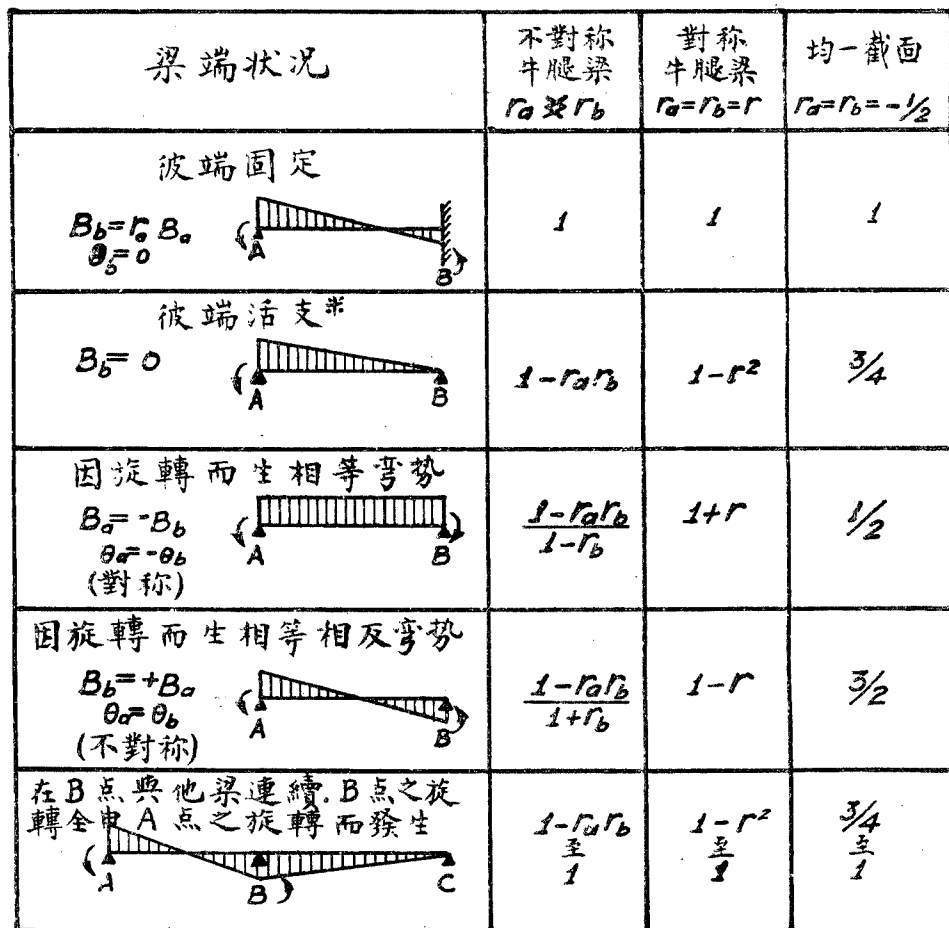 梁端状况
不對称
牛腿梁
ra ≠ rb
對称
牛腿梁
ra=rb=r
均一截面
ra=rb=-1/2
彼端固定
Bb=ra Ba
θb=0
A
B
1
1
1
彼端活支*
Bb=0
A
B
1-rarb
1-r²
3/4
因旋轉而生相等弯势
Ba=-Bb
θa=-θb
(對称)
A
B
1-rarb
1-rb
1+r
1/2
因旋轉而生相等相反弯势
Bb=+Ba
θa=θb
(不對称)
A
B
1-rarb
1+rb
1-r
3/2
在B点與他梁連續.B点之旋
轉全由A点之旋轉而發生
A
B
C
1-rarb
至
1
1-r²
至
1
3/4
至
1